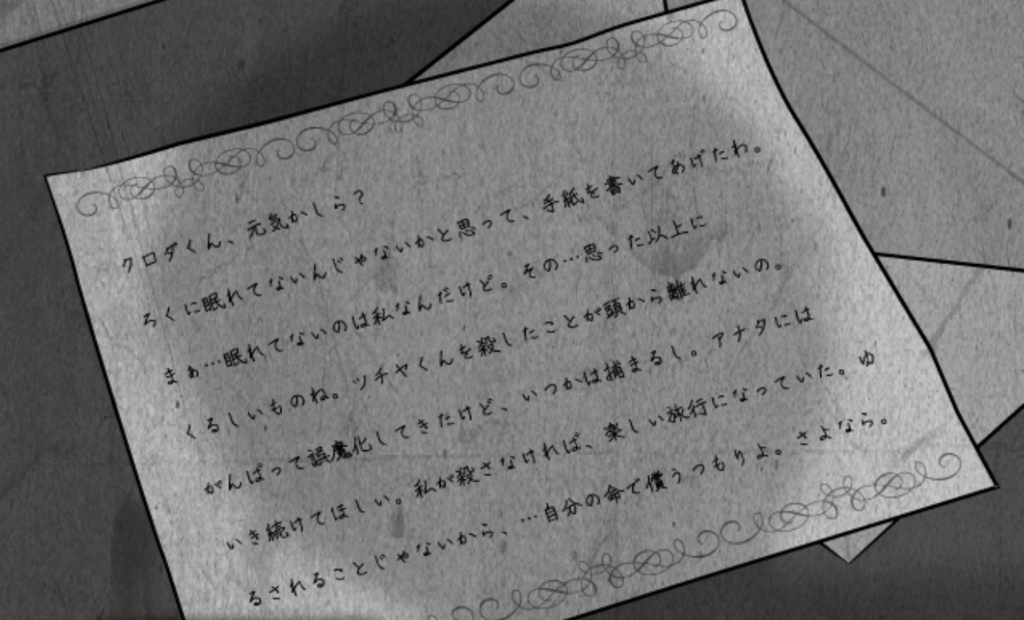 クロダくん、元気かしら？
ろくに眠れてないんじゃないかと思って、手紙を書いてあげたわ。
まぁ…眠れてないのは私なんだけど。その…思った以上に
くるしいものね。ツチヤくんを殺したことが頭から離れないの。
がんばって誤魔化してきたけど、いつかは捕まるし。アナタには
いき続けてほしい。私が殺さなければ、楽しい旅行になっていた。ゆ
るされることじゃないから、…自分の命で償うつもりよ。さよなら。